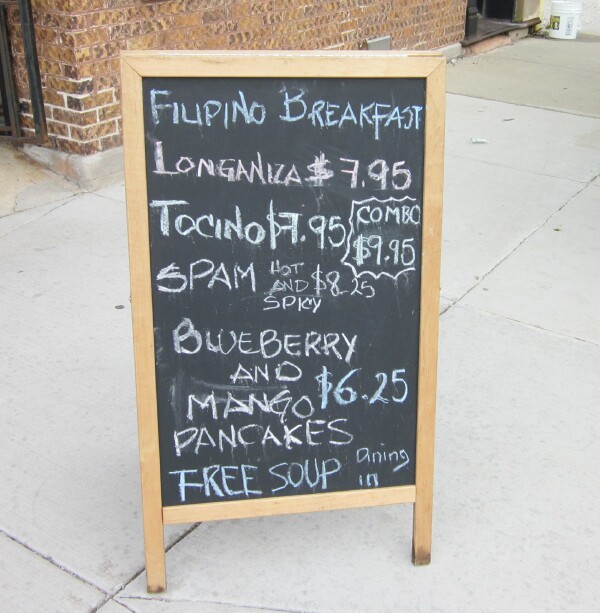 FILIPINO BREAKFAST
LONGANIZA $7.95
TOCINO $7.95
COMBO
$9.95
SPAM HOT AND SPICY $8.25
BLUEBERRY
AND
MANGO
PANCAKES
$6.25
FREE SOUP Dining in